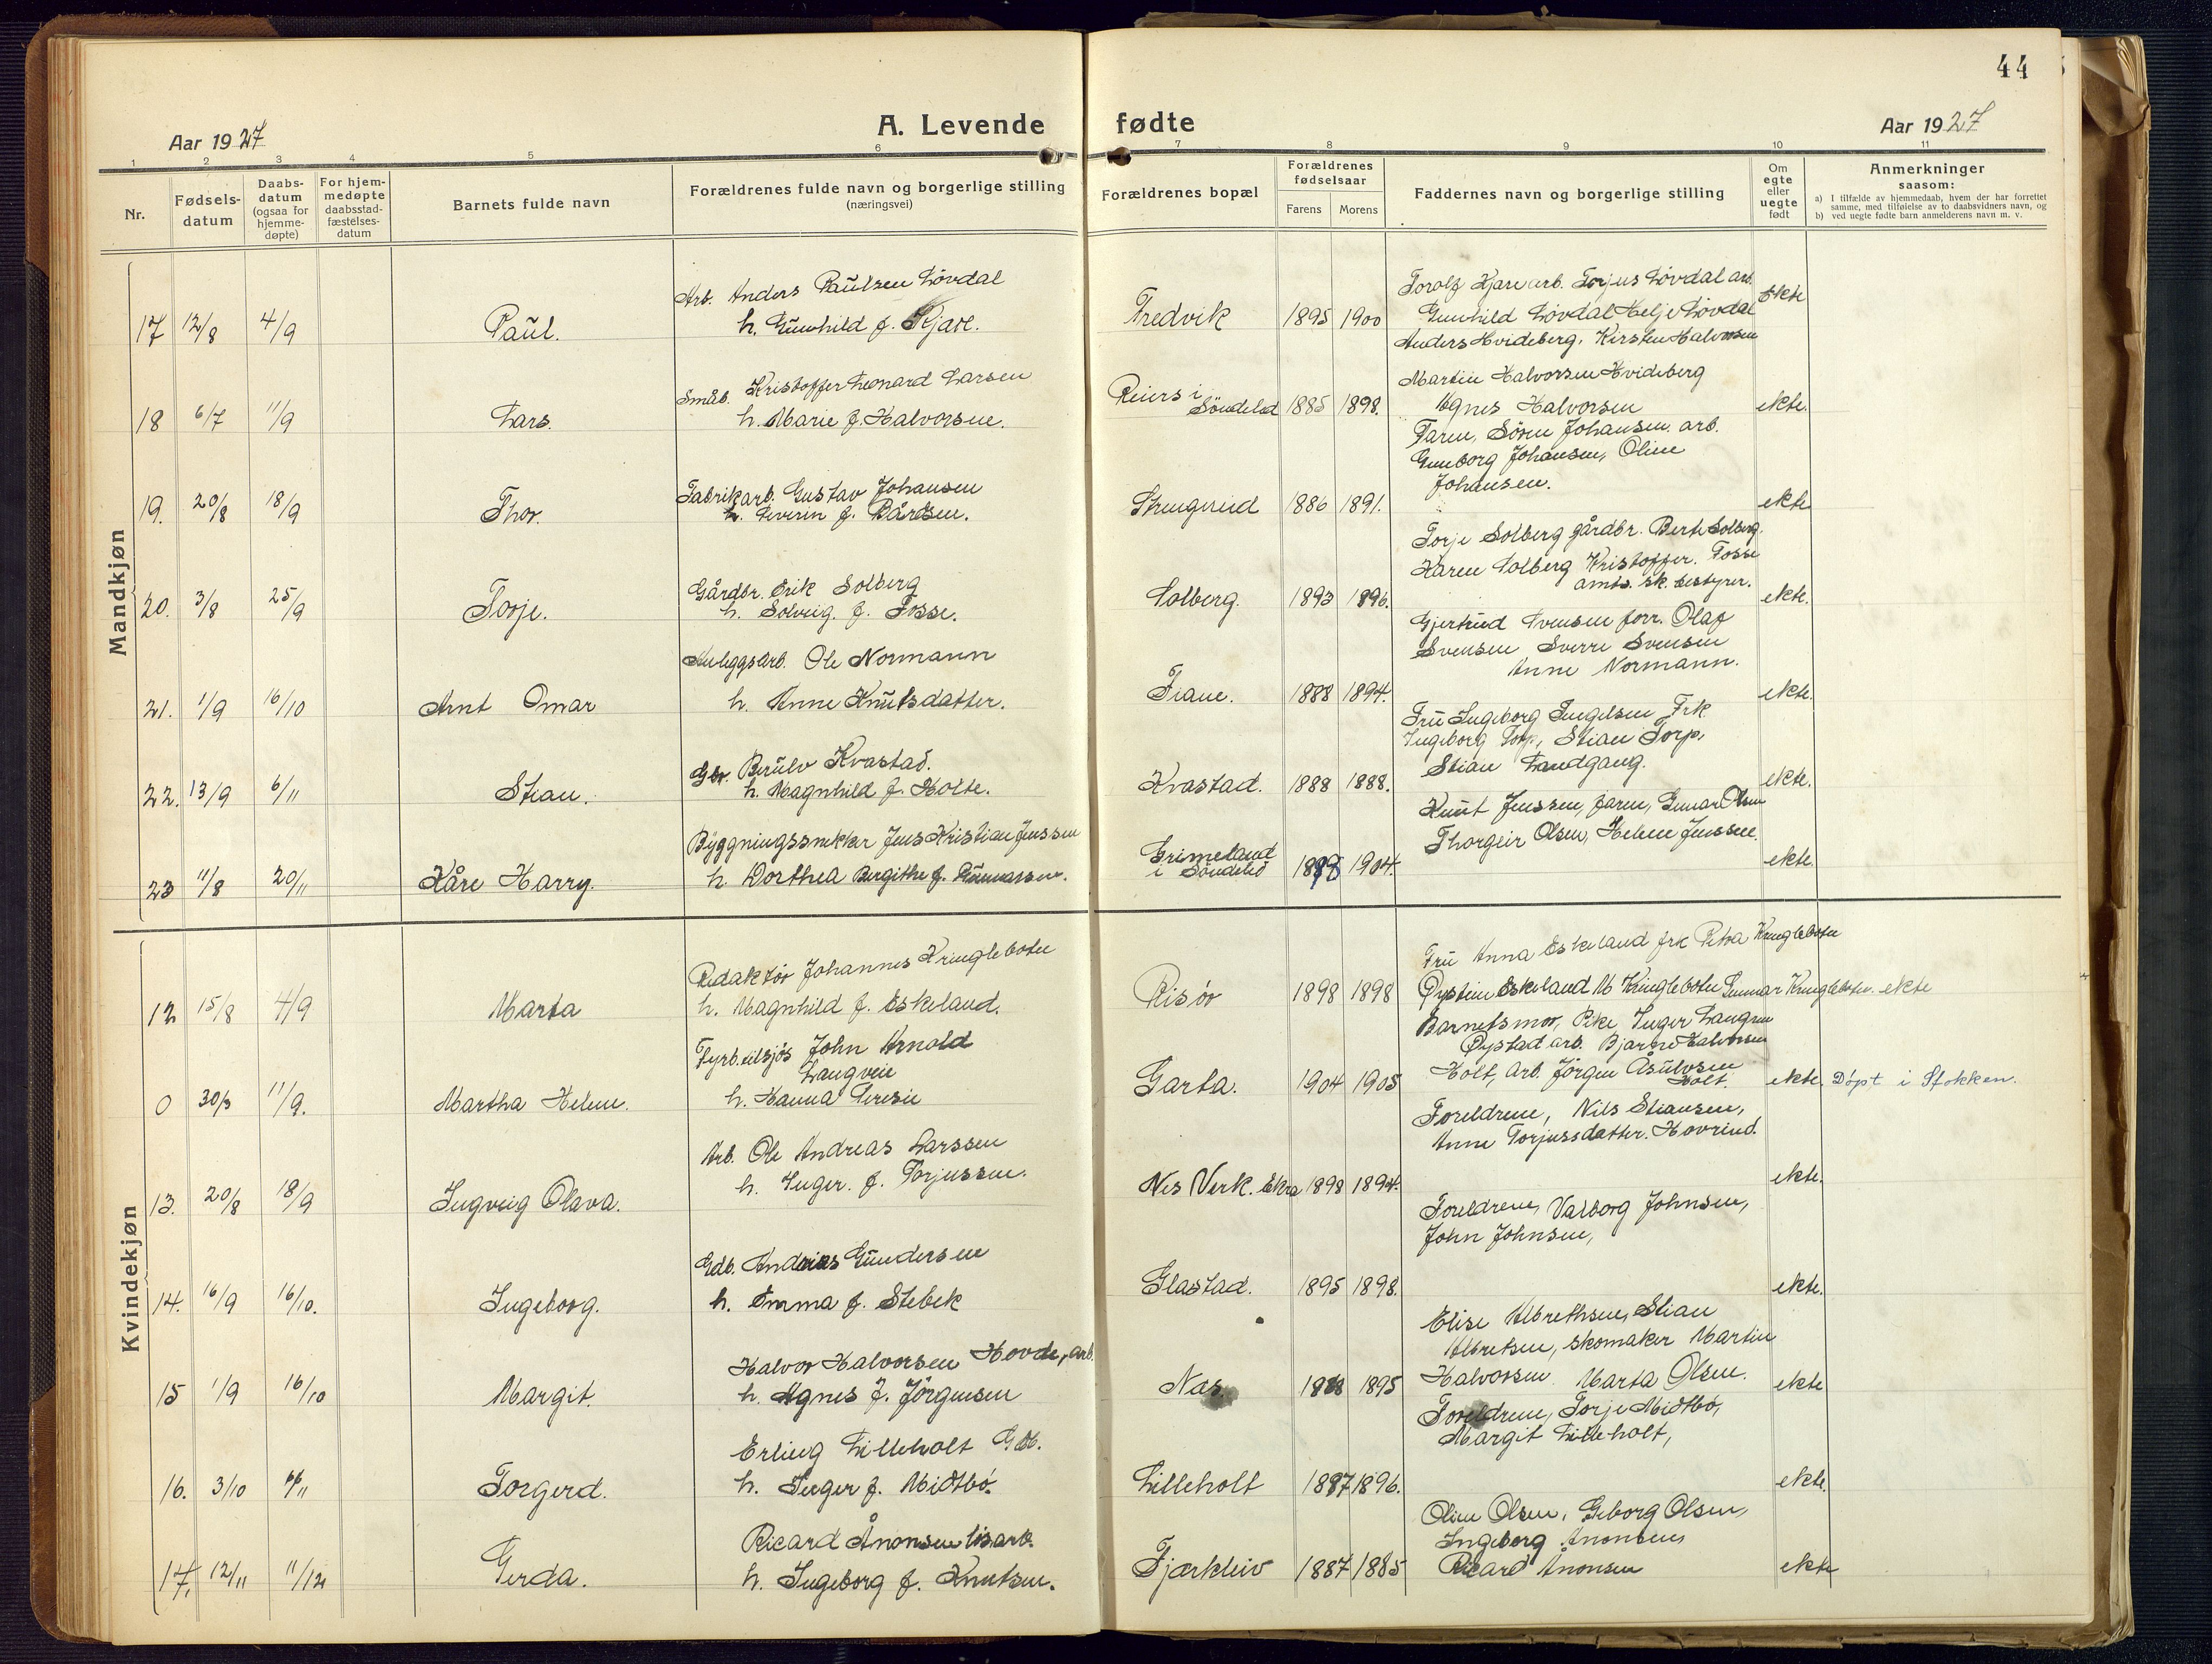 44
A. Levende fødte
Aar 1927
Aar 1927
1 2 3 4 5 6 7 8 9 10 11
Nr.
Fødsels-
datum
Daabs-
datum
(ogsaa for
hjemme-
døpte)
For hjem-
medøpte
daabsstad-
fæstelses-
datum
Barnets fulde navn
Forældrenes fulde navn og borgerlige stilling
(næringsvei)
Forældrenes bopæl
Forældrenes
fødselsaar
Farens Morens
Faddernes navn og borgerlige stilling
Om
egte
eller
uegte
født
Anmerkninger
saasom:
a) I tilfælde av hjemmedaab, hvem der har forrettet
samme, med tilføielse av to daabsvidners navn, og
b) ved uegte fødte barn anmelderens navn m. v.
Mandkjøn
17 12/8 4/9 Paul.
Arb. Anders Paulsen Løvdal
h. Gunhild f. Kjare.
Fredvik 1895 1900
Torolf Kjare arb. Torjus Løvdal arb.
Gunhild Løvdal Helje Løvdal
Anders Hvideberg. Kirsten Halvorsen
ekte
18 6/7 11/9 Lars.
Småb. Kristoffer Leonard Larsen
h. Marie f. Halvorsen.
Reiers i
Söndeled 1885 1898.
Martin Halvorsen Hvideberg
Agnes Halvorsen
ekte.
19. 20/8 18/9 Thor.
Fabrikarb. Gustav Johansen
h. Severin f. Bårdsen.
Strengerud 1886 1891.
Faren, Sören Johansen arb.
Gunborg Johansen, Oline
Johansen.
ekte
20. 3/8 25/9 Torje.
Gårdbr. Erik Solberg
h. Solveig. f. Fosse.
Solberg. 1893 1896.
Torje Solberg gårdbr. Berte Solberg.
Karen Solberg Kristoffer. Fosse
amts. sk. bestyrer.
ekte.
21. 1/9 16/10 Arnt Omar
Anleggsarb. Ole Normann
h. Anne Knutsdatter.
Fiane. 1888 1894.
Gjertrud Svensen forr. Olaf
Svensen Sverre Svensen
Anne Normann.
ekte.
22. 13/9 6/11 Stian.
Gbr. Berulv Kvastad.
h. Magnhild f. Holte.
Kvastad. 1888 1888.
Fru Ingeborg Engelsen Frk.
Ingeborg Torp, Stian Torp,
Stian Landgang.
ekte.
23 11/8 20/11 Kåre Harry.
Byggningssnekker Jens Kristian Jenssen
h. Dorthea Bergithe f. Gunnarssen.
Grimeland
i Söndeled 1898 1904.
Knut Jenssen, faren, Gunnar Olsen
Thorgeir Olsen, Helene Jenssen.
ekte
Kvindekjøn
12 15/8 4/9 Marta
Redaktör Johannes Kringlebotn
h. Magnhild f. Eskeland.
Risör 1898 1898
Fru Anna Eskeland frk Petra Kringlebotn
Øystein Eskeland M Kringlebotn Gunnar Kringlebotn. ekte
0 30/3 11/9. Martha Helene.
Fyrb. tilsjøs John Arnold
Langvei
h. Hanna Teresie
Garta. 1904 1905
Barnets mor, Pike Inger Langvei
Øystad arb. Bjarne Halvorsen
Holt, Arb. Jörgen Åsulvsen
Holt.
ekte. Döpt i Stokken.
13. 20/8 18/9 Ingveig Olava.
Arb. Ole Andreas Larssen
h. Inger. f. Torjussen.
Nes Verk. Ekra 1898 1894.
Foreldrene, Nils Stiansen,
Anne Torjussdatter. Hovrind.
ekte.
14. 16/9 16/10. Ingeborg.
Gdb. Andreas Gundersen
h. Emma f. Stebek
Glastad. 1895 1898.
Foreldrene, Valborg Johnsen,
John Johnsen,
ekte.
15 1/9 16/10 Margit.
Halvor Halvorsen Hovde, arb.
h. Agnes f. Jörgensen
Nas. 1888 1895
Elise Albrethsen, Stian
Albretsen, skomaker Martin
Halvorsen Marta Olsen.
ekte
16. 3/10 6/11 Torgerd.
Erling Lilleholt Gdb.
h. Inger f. Midtbö.
Lilleholt 1887 1896.
Foreldrene, Torje Midtbö,
Margit Lilleholt,
ekte.
17. 12/11 11/12 Gerda.
Ricard Ånonsen lösarb.
h. Ingeborg f. Knutsen.
Fjærkleiv 1887 1885
Oline Olsen, Geborg Olsen,
Ingeborg Ånonsen,
Ricard Ånonsen
ekte